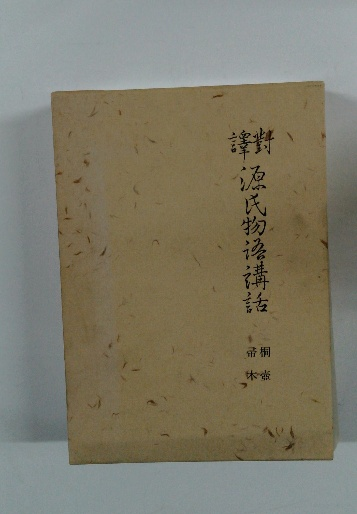 對譯 源氏物語講話
桐壺
帚木